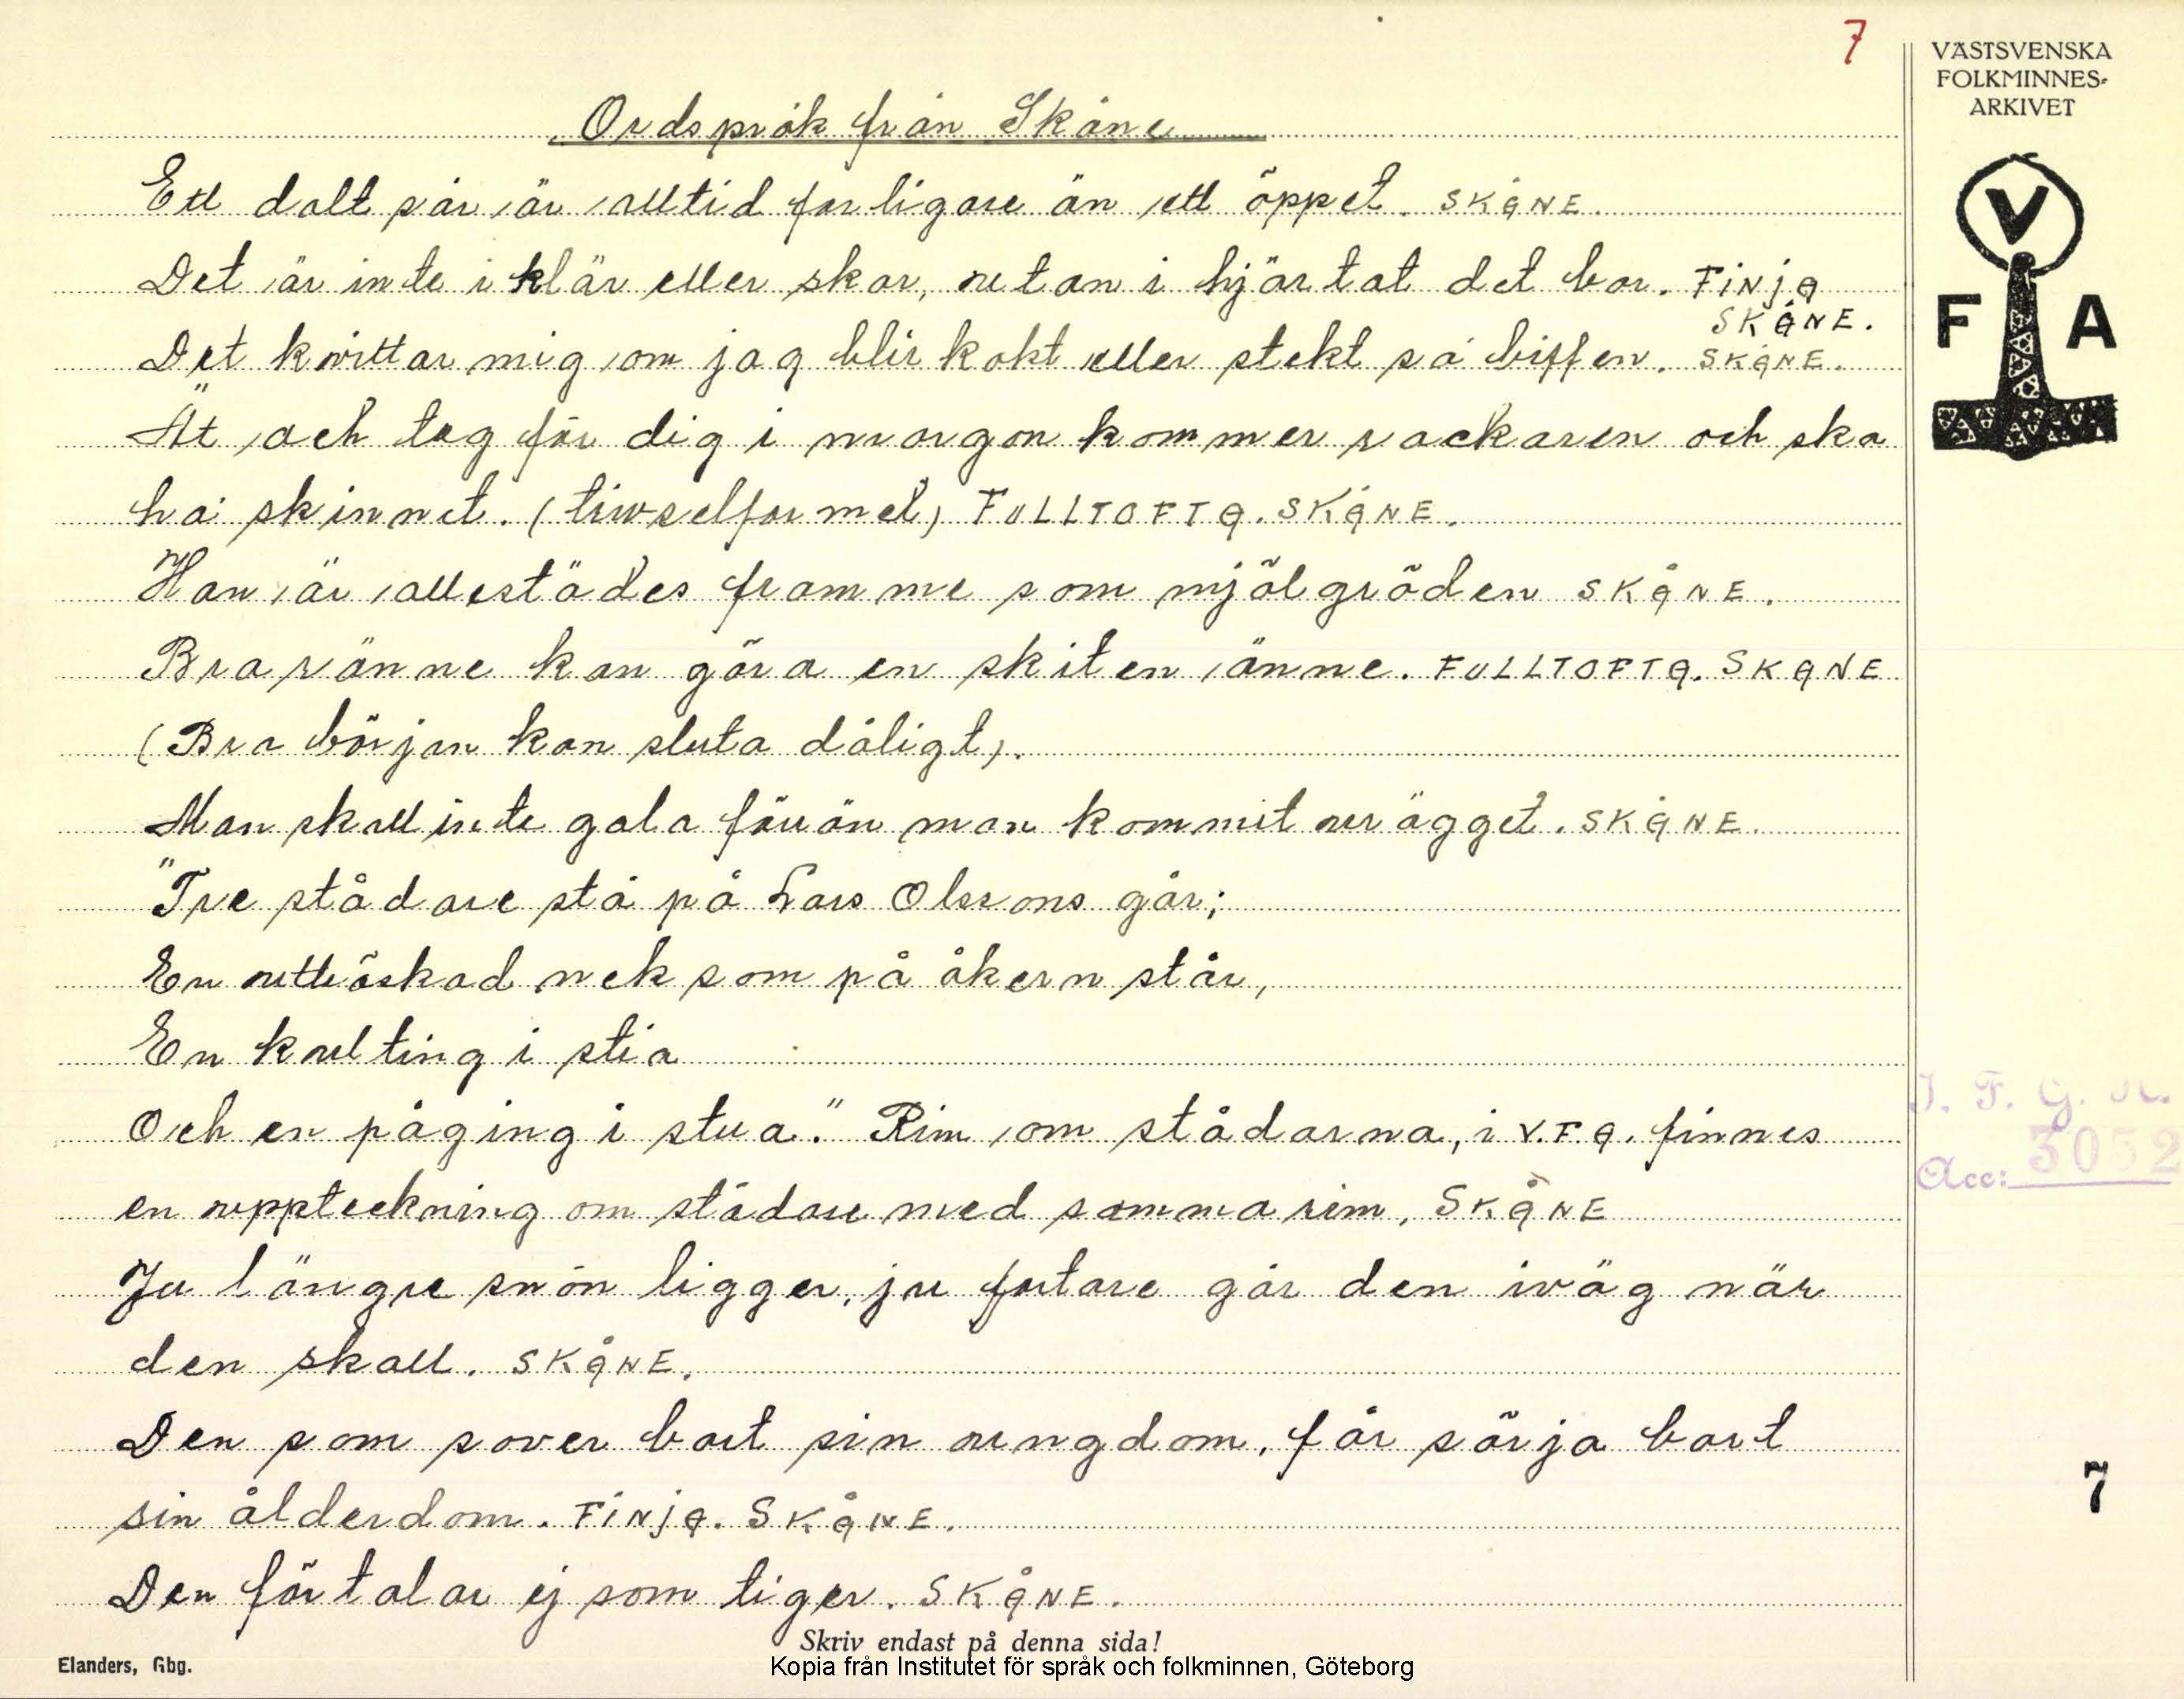 7
VÄSTSVENSKA
FOLKMINNES-
ARKIVET
V
F A
Ordspråk från Skåne
Ett dolt sår är alltid farligare än ett öppet. SKÅNE.
Det är inte i klär eller skor, utan i hjärtat det bor. FINJA
SKÅNE.
Det kvittar mig om jag blir kokt eller stekt sa biffen. SKÅNE.
Ät och tag för dig i morgon kommer rackaren och ska
ha skinnet. (trivselformel) FULLTOFTA. SKÅNE.
Han är allestädes framme som mjölgröden SKÅNE.
Bra ränne kan göra en skiten änne. FULLTOFTA. SKÅNE
(Bra början kan sluta dåligt).
Man skall inte gala förrän man kommit ur ägget. SKÅNE.
"Tre stådare stå på Lars Olssons går;
En uttröskad nek som på åkern står,
En kulting i stia
Och en påging i stua." Rim om stådarna, i V.F.A. finnes
en uppteckning om stådare med samma rim. SKÅNE
Ju längre snön ligger, ju fortare går den iväg när
den skall. SKÅNE.
Den som sover bort sin ungdom, får sörja bort
sin ålderdom. FINJA. SKÅNE.
Den förtalar ej som tiger. SKÅNE.
Skriv endast på denna sida!
Elanders, Gbg.
Kopia från Institutet för språk och folkminnen, Göteborg
I. F. G. H.
Acc: 3052
7